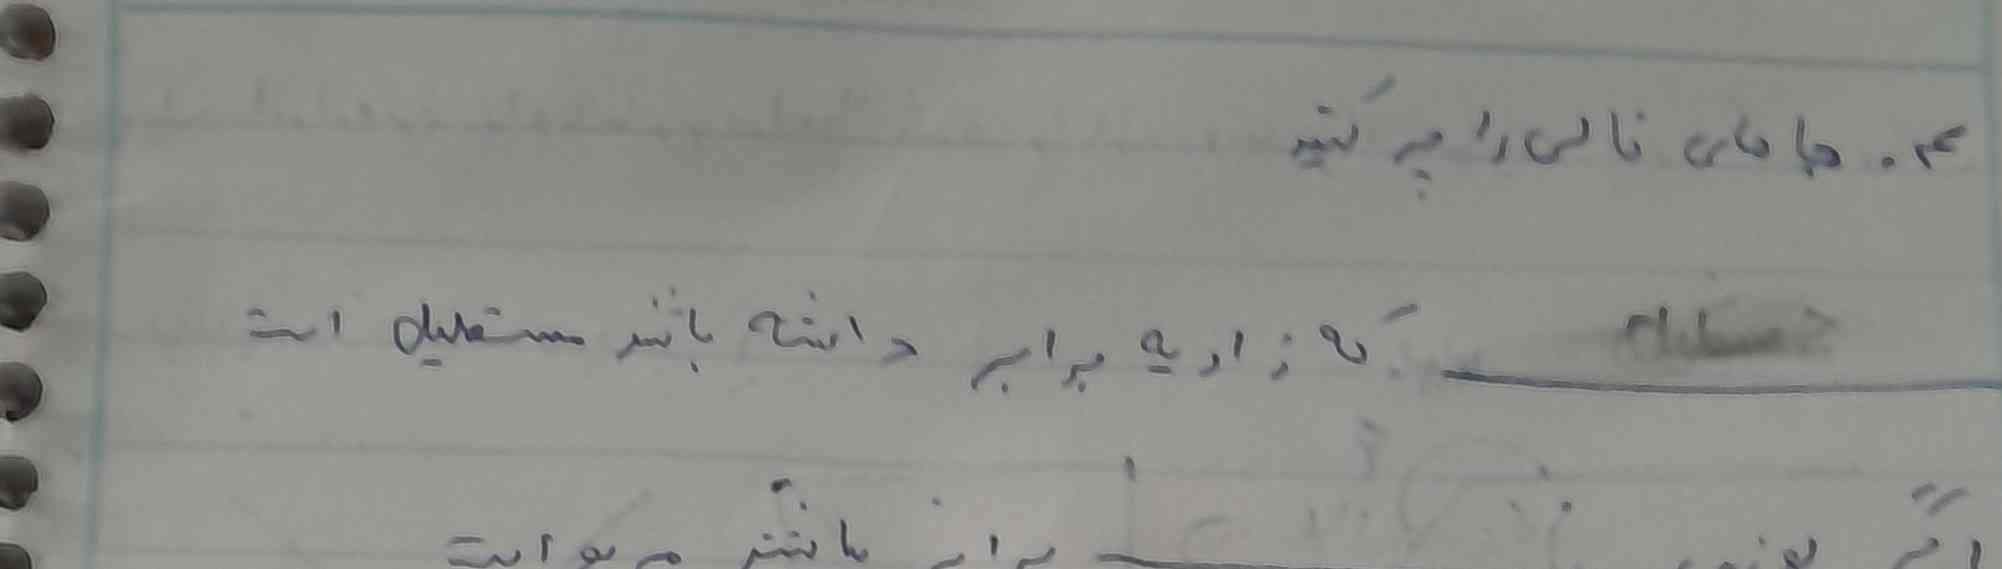 ۳. جاهای خالی را پر کنید
_______ که زاویه برابر داشته باشد مستطیل است
اگر لوزی _______ برابر باشد مربع است